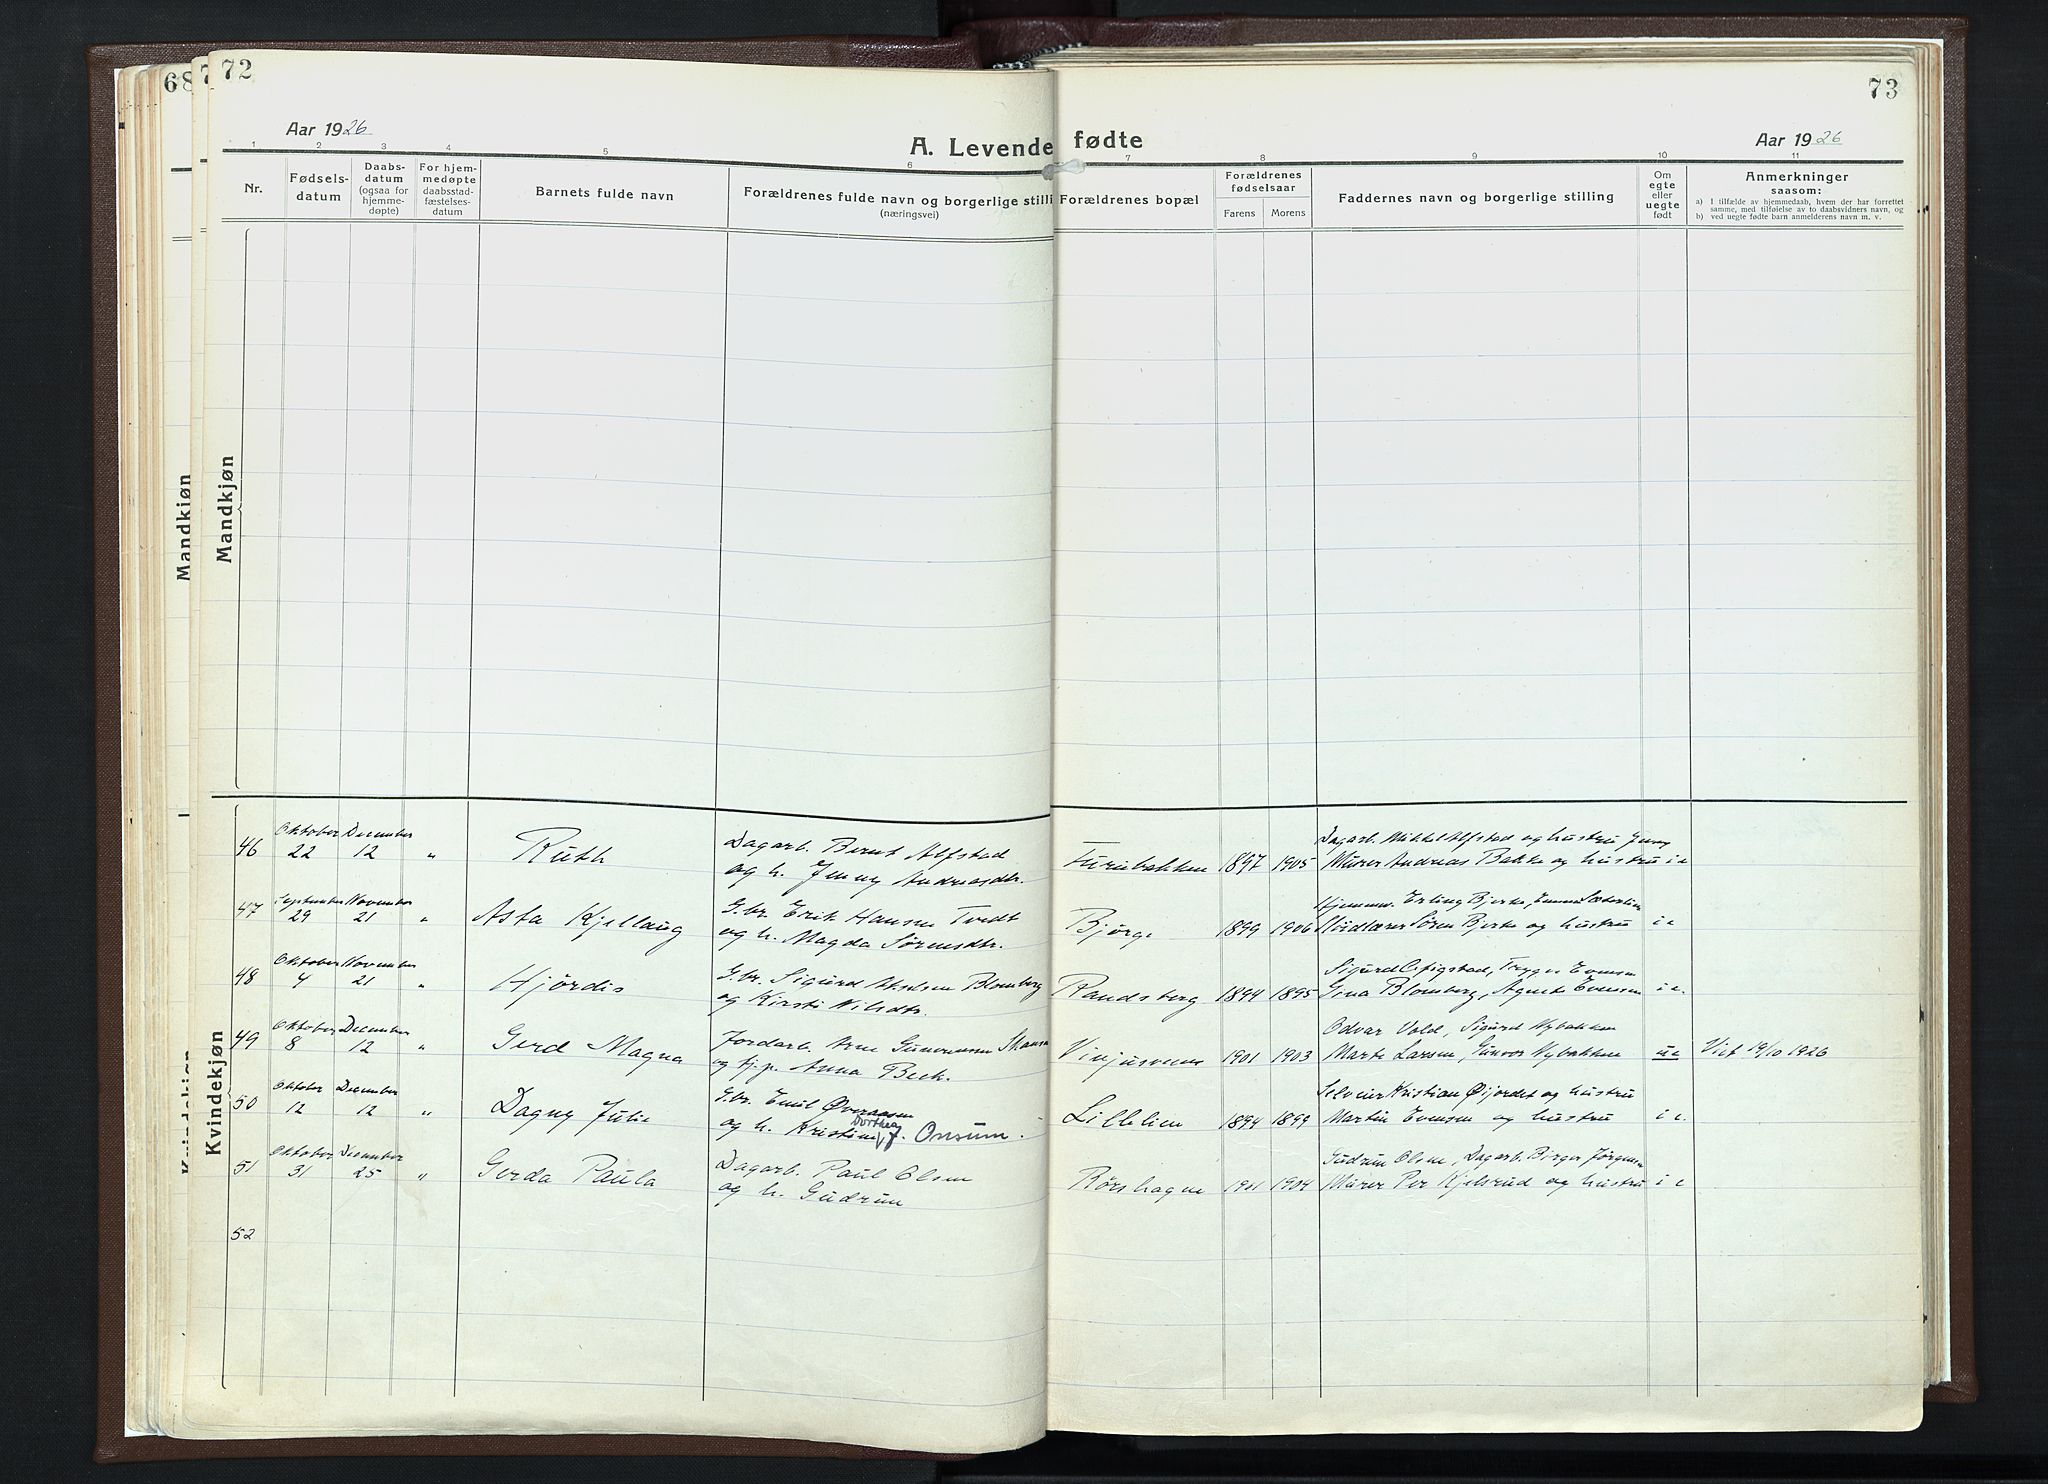 68
7
72
73
Aar 1926
A. Levende fødte
Aar 1926
1 2 3 4 5 6 7 8 9 10 11
Nr.
Fødsels-
datum
Daabs-
datum
(ogsaa for
hjemme-
døpte)
For hjem-
medøpte
daabsstad-
fæstelses-
datum
Barnets fulde navn
Forældrenes fulde navn og borgerlige stilli
(næringsvei)
Forældrenes bopæl
Forældrenes
fødselsaar
Farens Morens
Faddernes navn og borgerlige stilling
Om
egte
eller
uegte
født
Anmerkninger
saasom:
a) I tilfælde av hjemmedaab, hvem der har forrettet
samme, med tilføielse av to daabsvidners navn, og
b) ved uegte fødte barn anmelderens navn m. v.
Mandkjøn
Mandkjøn
Kvindekjøn
Kvindekjøn
46 Oktober 22 December 12 " Ruth
Dagarb. Bernt Alfstad
og h. Jenny Andreasdtr.
Furubakken 1897 1905
Dagarb. Mikkel Alfstad og hustru Jenny
Murer Andreas Bakke og hustru i e
47 September 29 November 21 " Asta Kjellaug
G.br. Erik Hansen Tvedt
og h. Magda Sørensdtr.
Bjørge 1899 1906
Hjemmev. Erling Bjerke, Emma Sæterlien
Søren Bjerke og hustru i e
48 Oktober 4 November 21 " Hjørdis
G.br. Sigurd Akselsen Blomberg
og Kirsti Nilsdtr.
Randsberg 1894 1895
Sigurd Trygve Evensen
Gina Blomberg, Agnete Evensen i e.
49 Oktober 8 December 12 " Gerd Magna
Jordarb. Arne Gunvensen
og tj.p. Anna Beck.
Vinjusveen 1901 1903
Odvar Vold, Sigurd Nybakken
Marte Larsen, Gunvor Nybakken ue
Viet 19/10 1926
50 Oktober 12 December 12 " Dagny Julie
G.br. Emil Øveraasen
og h. Kristine Dorthea f. Onsum.
Lillelien 1894 1899
Selveier Kristian Øijordet og hustru
Martin Evensen og hustru i e.
51 Oktober 31 December 25 " Gerda Paula
Dagarb. Paul Olsen
og h. Gudrun
Rørshagen 1901 1904
Gudrun Olsen, Dagarb. Birger Jørgensen
Murer Per Kjelsrud og hustru i e
52